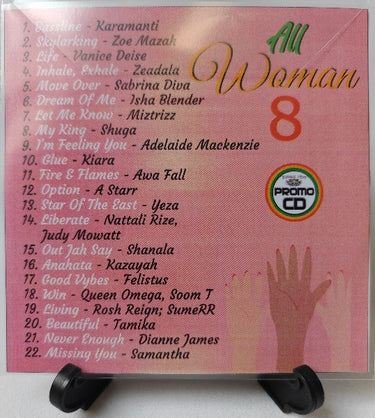 All
Woman
8
1. Bassline - Karamanti
2. Skylarking - Zoe Mazah
3. Life - Vanice Deise
4. Inhale, Exhale - Zeadala
5. Move Over - Sabrina Diva
6. Dream Of Me - Isha Blender
7. Let Me Know - Miztrizz
8. My King - Shuga
9. I'm Feeling You - Adelaide Mackenzie
10. Glue - Kiara
11. Fire & Flames - Awa Fall
12. Option - A Starr
13. Star Of The East - Yeza
14. Liberate - Nattali Rize,
Judy Mowatt
15. Out Jah Say - Shanala
16. Anahata - Kazayah
17. Good Vybes - Felistus
18. Win - Queen Omega, Soom T
19. Living - Rosh Reign; SumeRR
20. Beautiful - Tamika
21. Never Enough - Dianne James
22. Missing You - Samantha
PROMO
CD